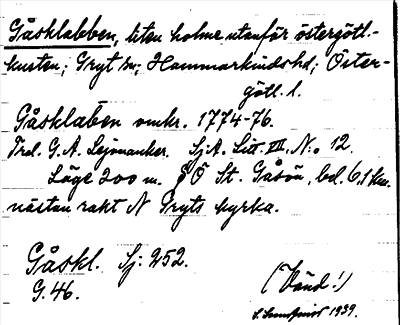 Gåsklabben, liten holme utanför östergötl.-
kusten; Gryt sn; Hammarkinds hd; Öster-
götl. l.
Gåsklaben omkr. 1774-76.
G. A. Lejonanker. Sj.A. Litt. VII. No 12.
Läge 200 m. Ö St. Gåsön, bel. 6,1 km.
nästan rakt N Gryts kyrka.
Gåskl. Sj: 252.
G. 46.
(Vänd!)
1939.